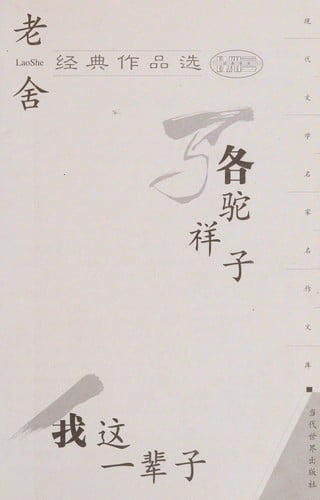 老舍
LaoShe
经典作品选
骆驼
祥子
我这
一辈子
现代文学名家名作文库
当代世界出版社